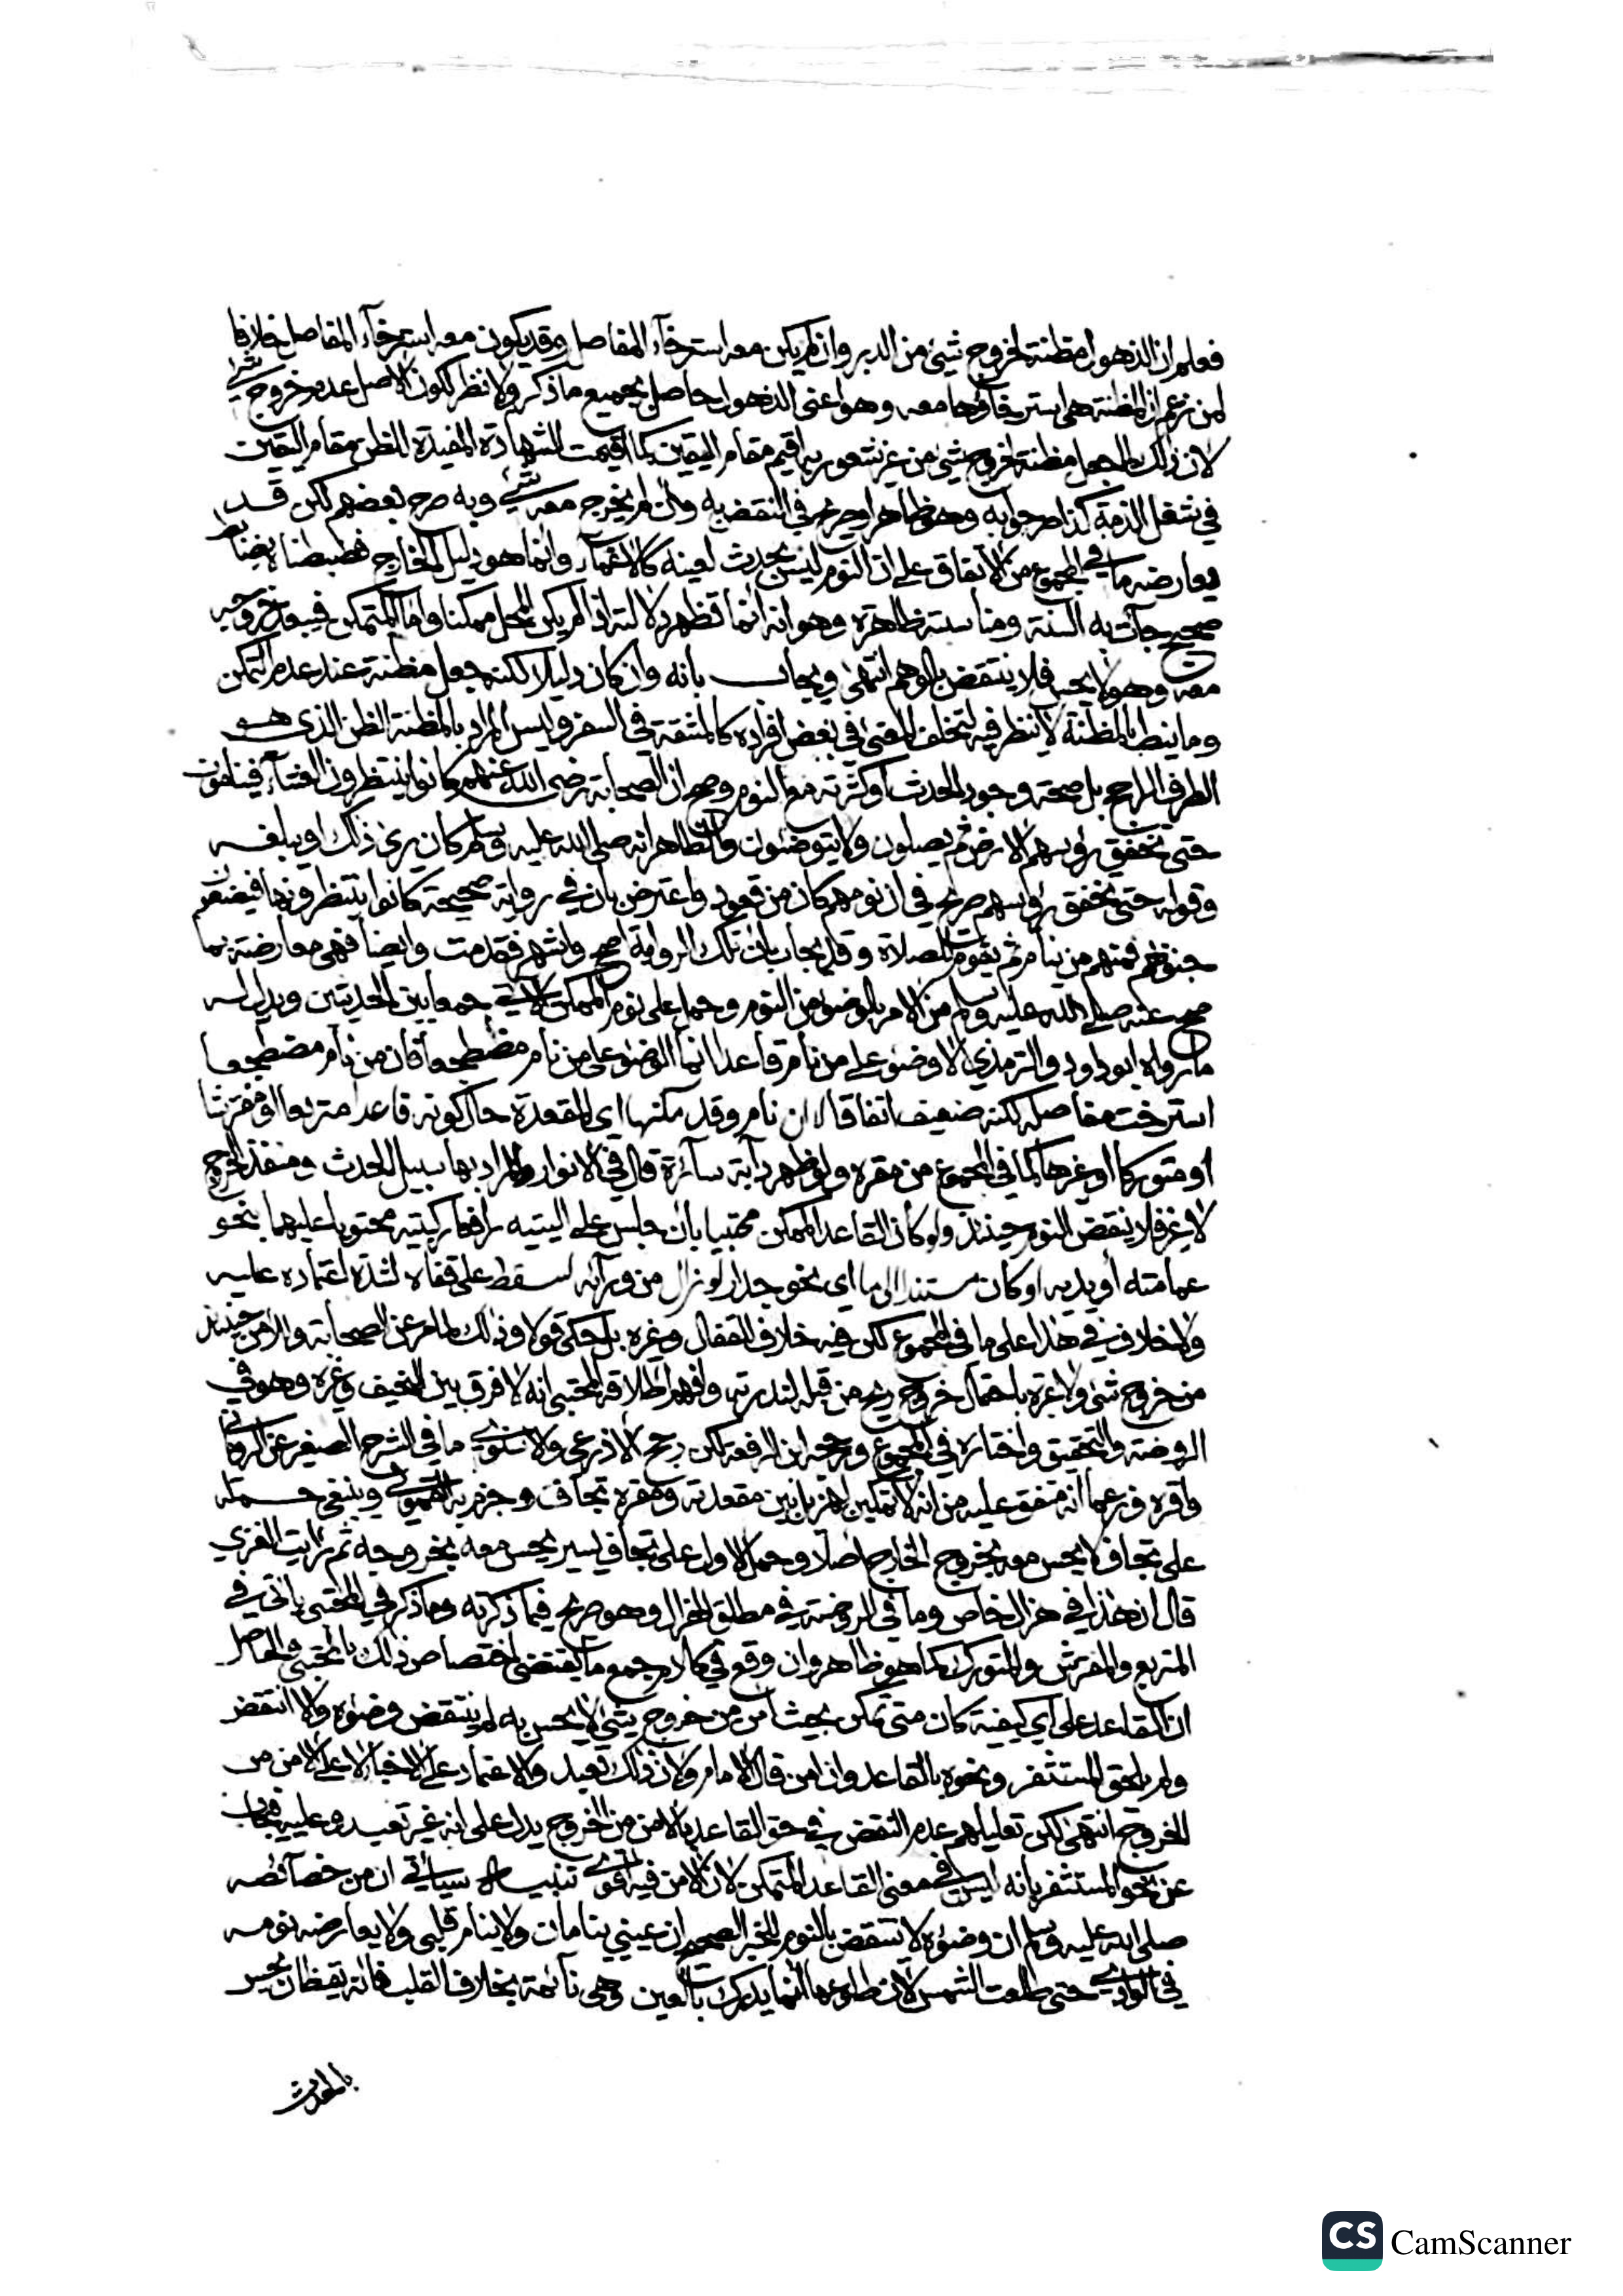 فعلم ان الذهول مظنة لخروج شئ من الدبر وان لم يكن معه استرخآء المفاصل وقد يكون معه استرخآء المفاصل خلافا
لمن زعم ان المظنة هى استرخاؤها معه وهو اعنى الذهول حاصل بجميع ما ذكر ولا نظر لكون الاصل عدم خروج شئ
لان ذلك لما جعل مظنة لخروج شئ من غير شعور به اقيم مقام اليقين كما اقيمت الشهادة المفيدة للظن مقام اليقين
في شغل الذمة كذا صرحوا به وهو ظاهر او صريح في النقض به وان لم يخرج معه شئ وبه صرح بعضهم لكن قد
يعارضه ما في المجموع من الاتفاق على ان النوم ليس بحدث لعينه كالاغمآء وانما هو دليل للخارج فضبطنا بضابط
صحيح جآت به السنة ومناسبته ظاهرة وهو انه انما تظهر دلالته اذا لم يكن المحل ممكنا واما المتمكن فيبعد خروجه
معه وهو لا يحس فلا ينتقض بالوهم انتهى ويجاب بانه وان كان دليلا لكنه جعل مظنة عند عدم التمكن
وما نيط بالمظنة لا ينظر فيه لتخلف المعنى في بعض افراده كالمشقة في السفر وليس المراد بالمظنة الظن الذى هو
الطرف الراجح بل صحة وجود الحدث او كثرته مع النوم وصح ان الصحابة رضى الله عنهم كانوا ينتظرون العشآء فينامون
حتى تخفق رؤسهم الارض ثم يصلون ولا يتوضئون والظاهر انه صلى الله عليه وسلم كان يرى ذلك او يبلغه
وقوله حتى تخفق رؤسهم صريح في ان نومهم كان من قعود واعترض بان في رواية صحيحة كانوا ينتظرونها فيضعون
جنوبهم فمنهم من ينام ثم يقوم للصلاة وقد يجاب بان تلك الرواية اصح واشهر فقدمت وايضا فهى معارضة بما
صح عنه صلى الله عليه وسلم من الامر بالوضوء من النوم وحمل على نوم الممكن الاتي جمعا بين الحديثين ويدل له
ما رواه ابو داود والترمذي لا وضوء على من نام قاعدا انما الوضوء على من نام مضطجعا فان من نام مضطجعا
استرخت مفاصله لكنه ضعيف اتفاقا لا ان نام وقد مكنها اى المقعدة حال كونه قاعدا متربعا او مفترشا
او متوركا او غيرها كما في المجموع من مقره ولو ظهر دآبة سآئرة قال في الانوار والمراد بها سبيل الحدث ومنفذ الخروج
لا غير فلا ينقض النوم حينئذ ولو كان القاعد الممكن محتبيا بان جلس على اليتيه رافعا ركبتيه محتويا عليهما بنحو
عمامته او يديه او كان مستندا الى ما اى نحو جدار لو زال من ورآئه لسقط على قفاه لشدة اعتماده عليه
ولا خلاف في هذا على ما في المجموع لكن فيه خلاف القفال وغيره بل حكى قولا وذلك لما مر عن الصحابة والامن حينئذ
من خروج شئ ولا عبرة باحتمال خروج ريح من قبله لندرته وافهم اطلاقه المحتبى انه لا فرق بين النحيف وغيره وهو في
الروضة والتحقيق واختاره في المجموع ورجحه ابن الرفعة لكن رجح الاذرعى والاسنوي ما في الشرح الصغير عن الروياني
واقره وزعما انه متفق عليه من انه لا تمكين لمن بان بين مقعدته ومقره تجاف وجزم به القمولى وينبغى حمله
على تجاف لا يحس معه بخروج الخارج اصلا وحمل الاول على تجاف يسير يحس معه بخروجه ثم رايت الغزي
قال ان هذا في هزال خاص وما في الروضة في مطلق الهزال وهو صريح فيما ذكرته وما ذكر في المحتبى ياتى في
المتربع والمفترش والمتورك كما هو ظاهر وان وقع في كلام جمع ما يقتضى اختصاص ذلك بالمحتبى والحاصل
ان القاعد على اي كيفية كان متى تمكن بحيث امن من خروج شئ لا يحس به لم ينتقض وضوءه والا انتقض
ولم يلحق المستثفر ونحوه بالقاعد وان امن قال الامام ولان ذلك تعبد والاعتماد على الاخبار لا على الامن من
الخروج انتهى لكن تعليلهم عدم النقض في حق القاعد بالامن من الخروج يدل على انه غير تعبد وعليه فيجاب
عن نحو المستثفر بانه ليس في معنى القاعد المتمكن لان الامن فيه اقوى تنبيه سياتي ان من خصآئصه
صلى الله عليه وسلم ان وضوءه لا ينتقض بالنوم للخبر الصحيح ان عيني تنامان ولا ينام قلبي ولا يعارضه نومه
في الوادي حتى طلعت الشمس لان طلوعها انما يدرك بالعين وهى نآئمة بخلاف القلب فانه يقظان يحس
بالحدث
CS CamScanner